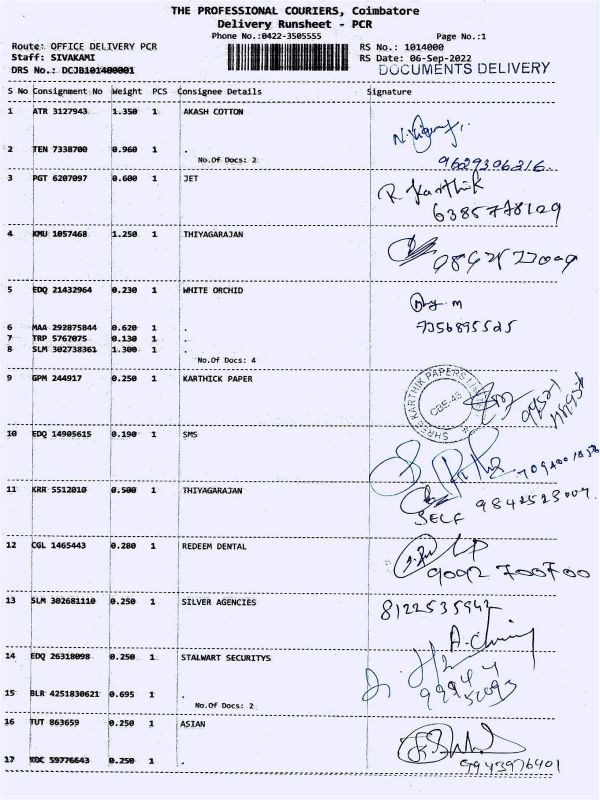 THE PROFESSIONAL COURIERS, Coimbatore
Delivery Runsheet - PCR
Phone No.:0422-3505555 Page No.:1
Route: OFFICE DELIVERY PCR RS No.: 1014000
Staff: SIVAKAMI RS Date: 06-Sep-2022
DRS No.: DCJB101400001 DOCUMENTS DELIVERY
S No Consignment No Weight PCS Consignee Details Signature
1 ATR 3127943 1.350 1 AKASH COTTON
2 TEN 7338700 0.960 1 .
No.Of Docs: 2 9629306216
3 PGT 6207097 0.600 1 JET R Karthik
6385778129
4 KMU 1057468 1.250 1 THIYAGARAJAN
5 EDQ 21432964 0.230 1 WHITE ORCHID
6 MAA 292875844 0.620 1 . 7356895525
7 TRP 5767075 0.130 1 .
8 SLM 302738361 1.300 1 .
No.Of Docs: 4
9 GPM 244917 0.250 1 KARTHICK PAPER SHREE KARTHIK PAPERS LIMITED CBE-45
10 EDQ 14905615 0.190 1 SMS
11 KRR 5512010 0.500 1 THIYAGARAJAN 9842523007
SELF
12 CGL 1465443 0.280 1 REDEEM DENTAL
9092 700700
13 SLM 302681110 0.250 1 SILVER AGENCIES 8122535942
14 EDQ 26318098 0.250 1 STALWART SECURITYS
15 BLR 4251830621 0.695 1 .
No.Of Docs: 2
16 TUT 863659 0.250 1 ASIAN
17 KOC 59776643 0.250 1 . 9943976401